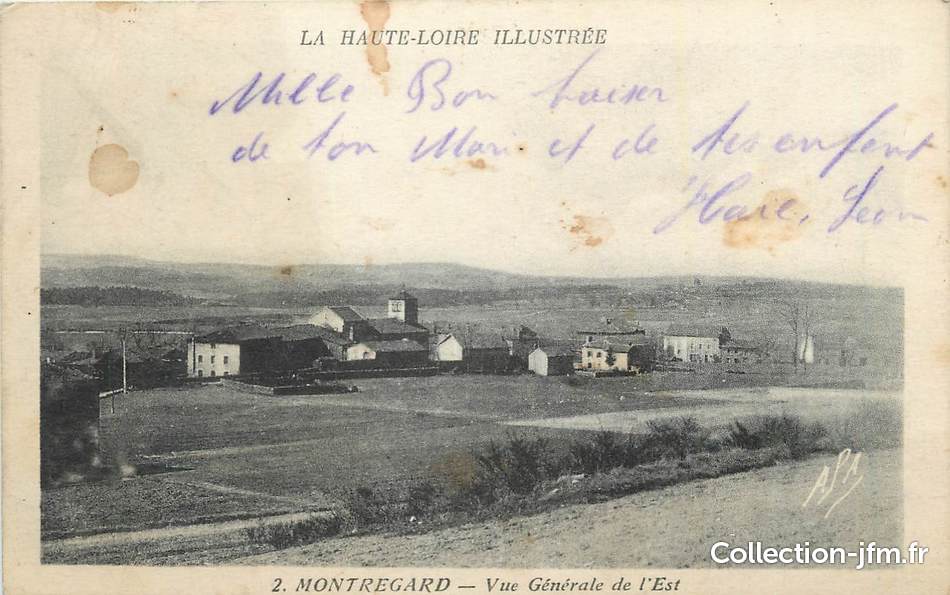 LA HAUTE-LOIRE ILLUSTRÉE
Mille Bon baiser
de ton Mari et de tes enfent
Léon
APA
Collection-jfm.fr
2. MONTREGARD — Vue Générale de l'Est